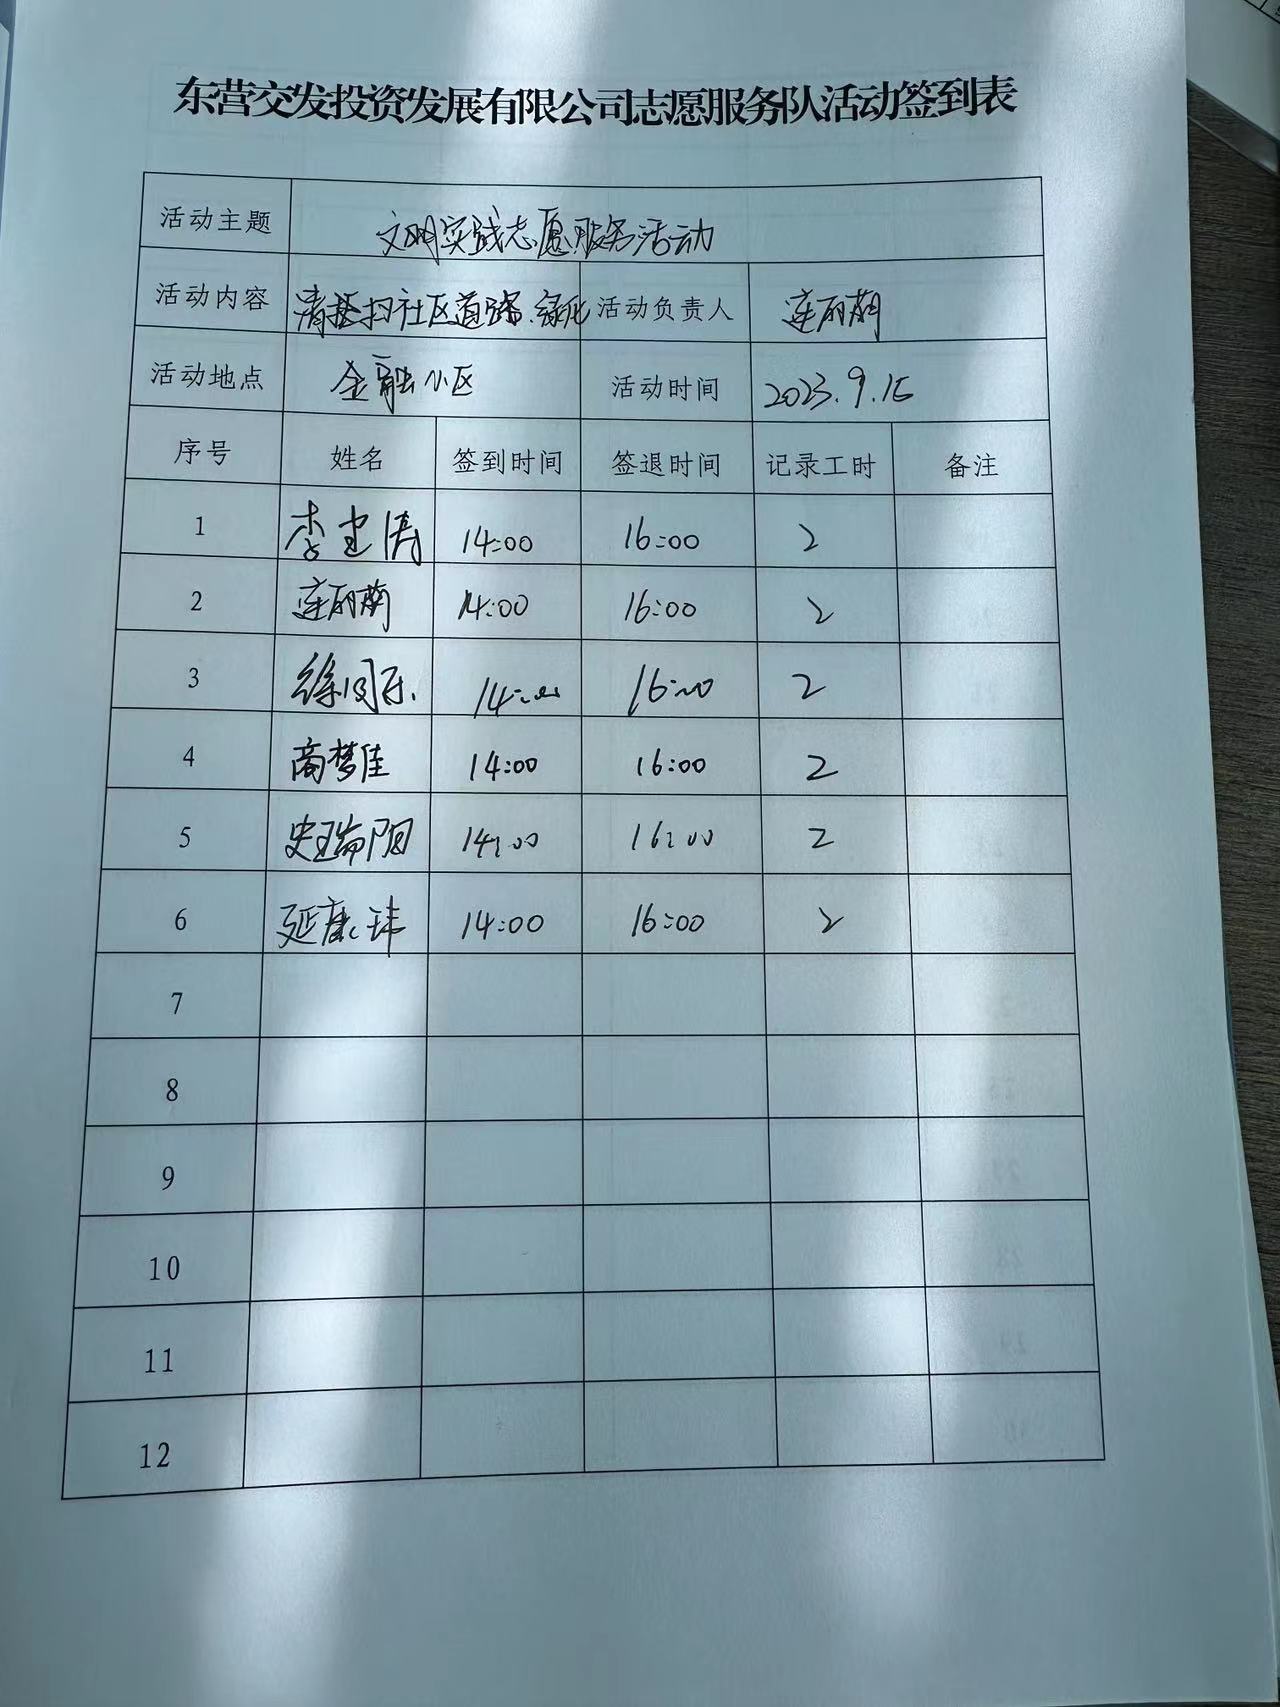 东营交发投资发展有限公司志愿服务队活动签到表
活动主题 文明实践志愿服务活动
活动内容 清扫社区道路、绿化 活动负责人 连丽萌
活动地点 金融小区 活动时间 2023.9.15
序号 姓名 签到时间 签退时间 记录工时 备注
1 李建涛 14:00 16:00 2
2 连丽萌 14:00 16:00 2
3 徐 14:00 16:00 2
4 商梦佳 14:00 16:00 2
5 史瑞阳 14:00 16:00 2
6 延康玮 14:00 16:00 2
7
8
9
10
11
12